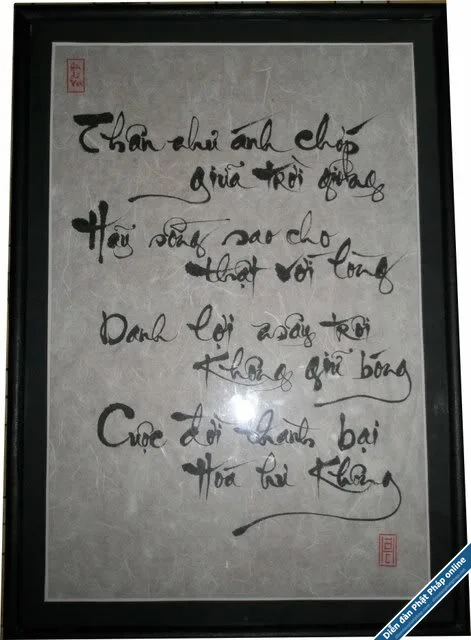 Thân như ánh chớp
giữa trời giông
Hãy sống sao cho
thật với lòng
Danh lợi mây trôi
Không giữ bóng
Cuộc đời thành bại
Hoá hư Không
Diễn đàn Phật Pháp online